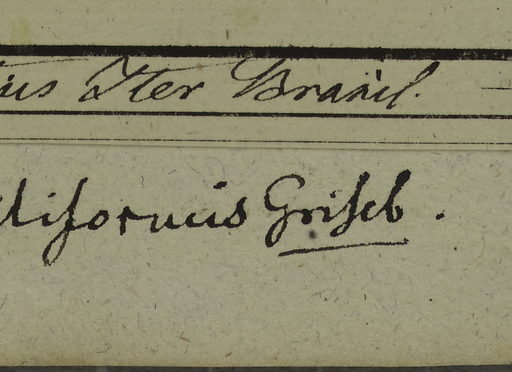 ius Iter Brasil.
liformis Griseb.